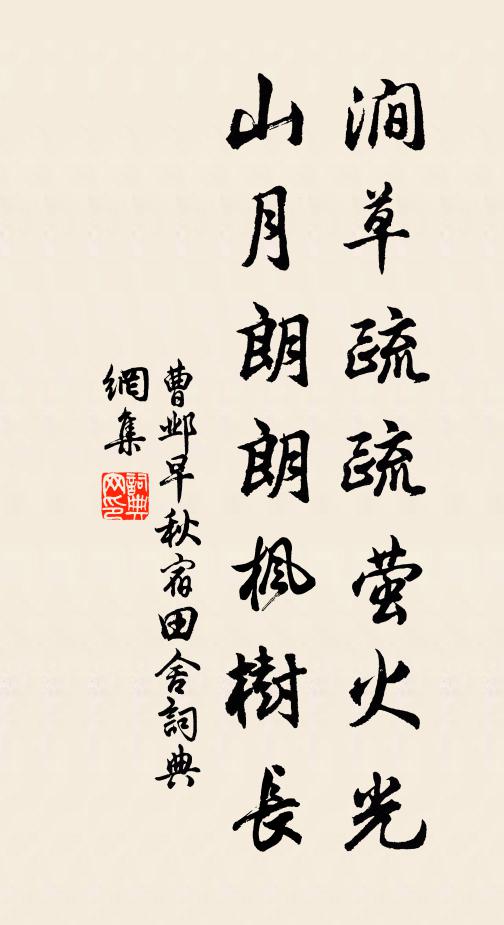 澗草疏疏萤火光
山月朗朗楓樹長
曹邺早秋宿田舍詞典
網集
詞典
网印